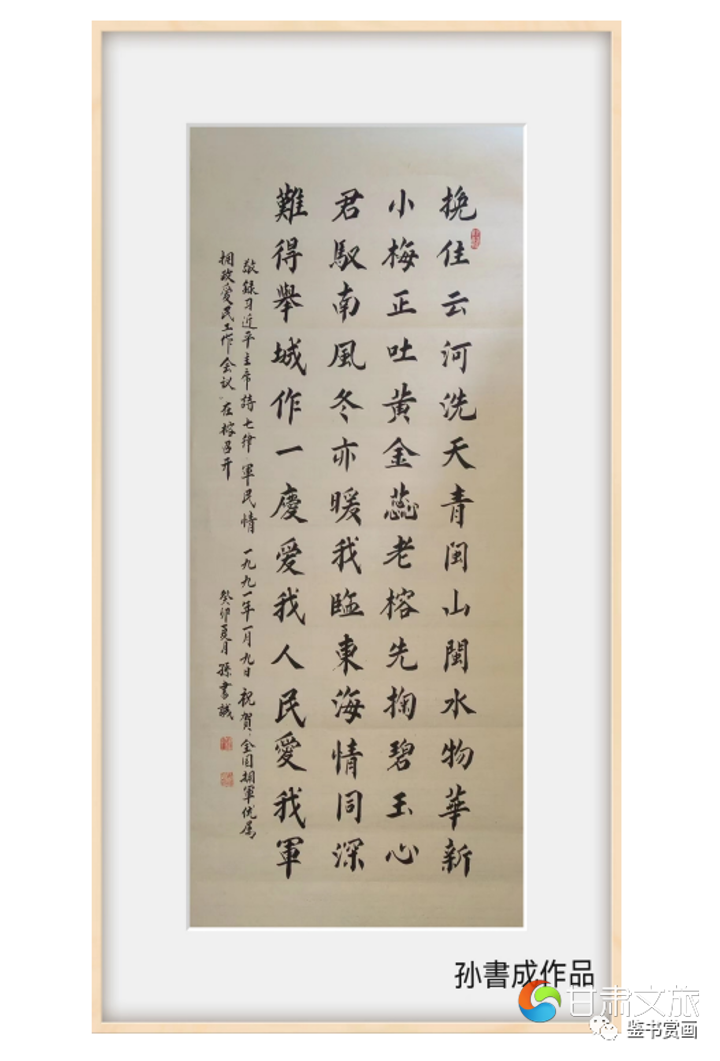 挽住云河洗天青闽山閩水物華新
小梅正吐黄金蕊老榕先掬碧玉心
君驭南風冬亦暖我臨東海情同深
難得舉城作一慶愛我人民愛我軍
敬録习近平主席詩七律·軍民情 一九九一年一月九日 祝賀·全国拥軍优属
拥政愛民工作会议·在榕召开 癸卯夏月 孫書誠
孙書成作品
甘肃文旅
鉴书赏画